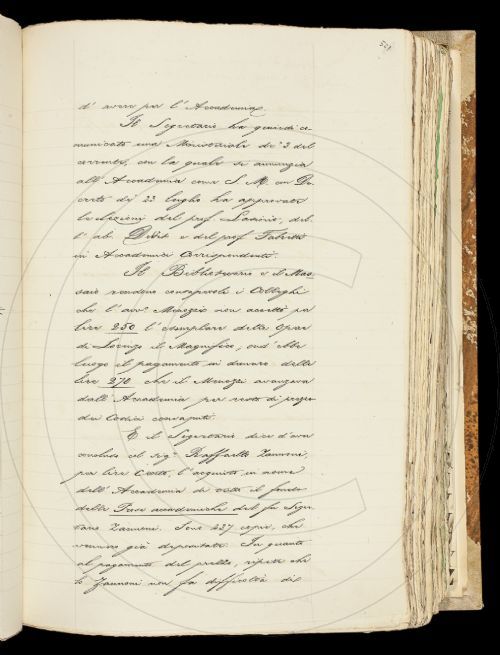 521
d' avere per l' Accademia.
Il Segretario ha quindi co-
municato una Ministeriale de' 2 del
corrente, con la quale si annunzia
all' Accademia come S. M. con De-
creto di 23 luglio ha approvato
le elezioni del prof. Lasinio, del-
l' ab. Debit e del prof. Fabretti
in Accademici Corrispondenti.
Il Bibliotecario e il Mas-
saio rendono consapevoli i Colleghi
che l' avv.º Menozzi non accettò per
lire 250 l' esemplare delle Opere
di Lorenzo il Magnifico, ond' ebbe
luogo il pagamento in danaro delle
lire 270 che il Menozzi avanzava
dall' Accademia per resto di prezzo
dei Codici comprati.
E il Segretario dice d' aver
concluso col sig.º Raffaello Zannoni,
per lire Cento, l' acquisto in nome
dell' Accademia di tutto il fondo
delle Prose accademiche del fu Segre-
tario Zannoni. Sono 427 copie, che
vennero già depositate. In quanto
al pagamento del prezzo, ripete che
lo Zannoni non fa difficoltà di